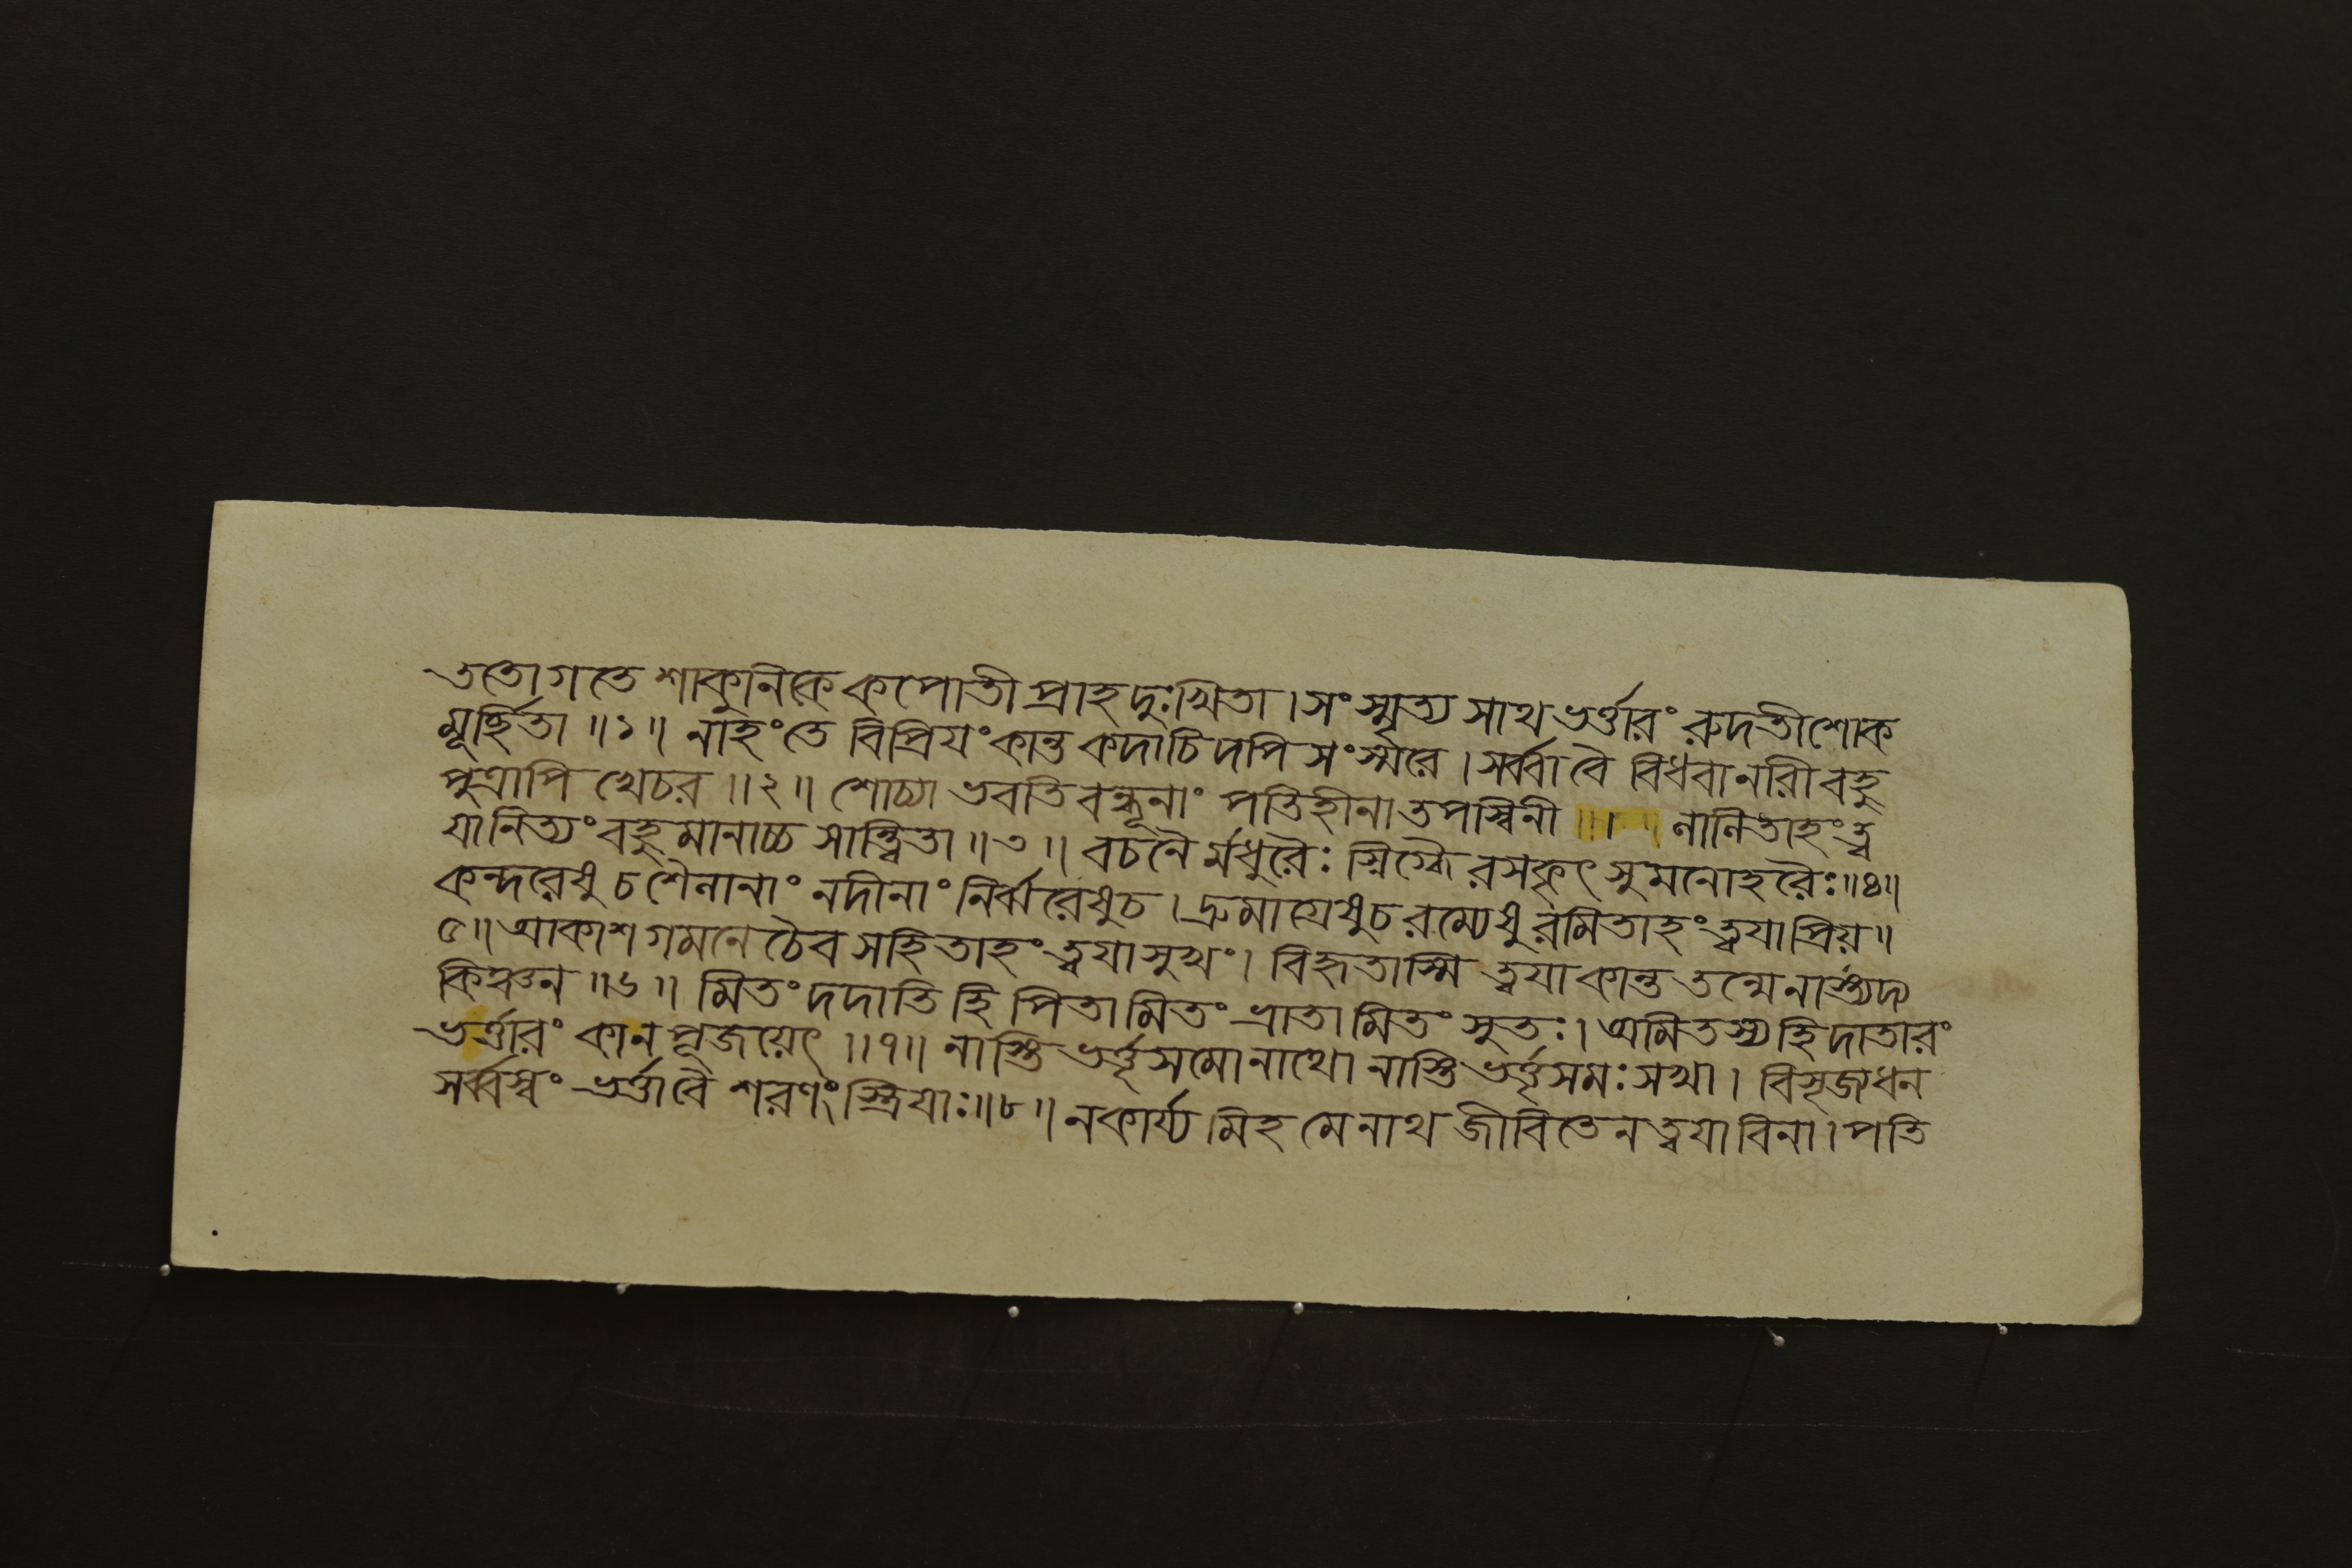 ততোগতে শাকুনিকে কপোতী প্রাহ দুঃখিতা । সংস্মৃত্য সাথ ভর্ত্তারং রুদতীশোক
মূর্চ্ছিতা ॥ ১ ॥ নাহং তে বিপ্রিযং কান্ত কদাচিদপি সংস্মরে । সর্ব্বা বৈ বিধবা নারী বহু
পুত্রাপি খেচর ॥ ২ ॥ শোচ্যা ভবতি বন্ধূনাং পতিহীনা তপস্বিনী ॥ লালিতাহং ত্ব
যা নিত্যং বহুমানাচ্চ সান্ত্বিতা ॥ ৩ ॥ বচনৈ র্মধুরৈঃ স্নিগ্ধৈ রসকৃৎ সুমনোহরৈঃ ॥ ৪ ॥
কন্দরেষু চ শৈলানাং নদীনাং নির্ঝরেষু চ । দ্রুমাগ্রেষু চ রম্যেষু রমিতাহং ত্বযা প্রিয় ॥
৫ ॥ আকাশ গমনে চৈব সহিতাহং ত্বযা সুখং । বিহৃতাস্মি ত্বযা কান্ত তন্মে নাস্ত্যদ্য
কিঞ্চন ॥ ৬ ॥ মিতং দদাতি হি পিতা মিতং ভ্রাতা মিতং সুতঃ । অমিতস্য হি দাতারং
ভর্ত্তারং কা ন পূজয়েৎ ॥ ৭ ॥ নাস্তি ভর্ত্তৃসমো নাথো নাস্তি ভর্ত্তৃসমঃ সখা । বিসৃজ্য ধন
সর্ব্বস্বং ভর্ত্তা বৈ শরণং স্ত্রিযাঃ ॥ ৮ ॥ ন কার্য্য মিহ মে নাথ জীবিতেন ত্বযা বিনা । পতি